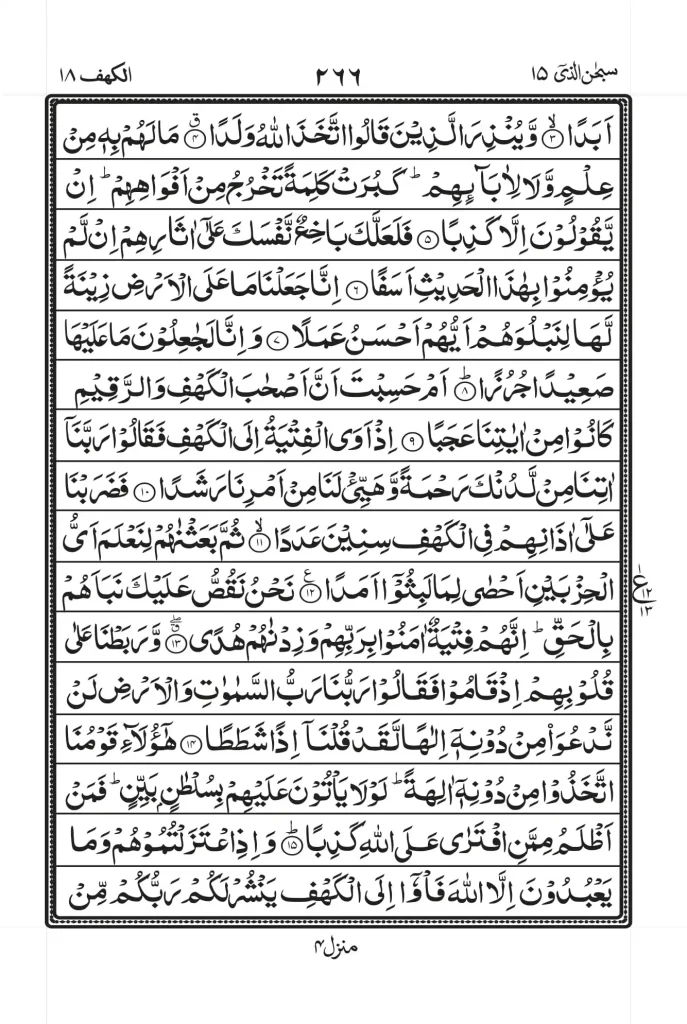 سبحٰن الذیٓ ١٥ ٢٦٦ الکهف ١٨
اَبَدًا ۙ﴿۳﴾ وَّ یُنْذِرَ الَّذِیْنَ قَالُوا اتَّخَذَ اللّٰهُ وَلَدًا ۗ﴿۴﴾ مَا لَهُمْ بِهٖ مِنْ
عِلْمٍ وَّ لَا لِاٰبَآىِٕهِمْ ؕ كَبُرَتْ كَلِمَةً تَخْرُجُ مِنْ اَفْوَاهِهِمْ ؕ اِنْ
یَّقُوْلُوْنَ اِلَّا كَذِبًا ﴿۵﴾ فَلَعَلَّكَ بَاخِعٌ نَّفْسَكَ عَلٰۤی اٰثَارِهِمْ اِنْ لَّمْ
یُؤْمِنُوْا بِهٰذَا الْحَدِیْثِ اَسَفًا ﴿۶﴾ اِنَّا جَعَلْنَا مَا عَلَی الْاَرْضِ زِیْنَةً
لَّهَا لِنَبْلُوَهُمْ اَیُّهُمْ اَحْسَنُ عَمَلًا ﴿۷﴾ وَ اِنَّا لَجٰعِلُوْنَ مَا عَلَیْهَا
صَعِیْدًا جُرُزًا ؕ﴿۸﴾ اَمْ حَسِبْتَ اَنَّ اَصْحٰبَ الْكَهْفِ وَ الرَّقِیْمِ
كَانُوْا مِنْ اٰیٰتِنَا عَجَبًا ﴿۹﴾ اِذْ اَوَی الْفِتْیَةُ اِلَی الْكَهْفِ فَقَالُوْا رَبَّنَاۤ
اٰتِنَا مِنْ لَّدُنْكَ رَحْمَةً وَّ هَیِّئْ لَنَا مِنْ اَمْرِنَا رَشَدًا ﴿۱۰﴾ فَضَرَبْنَا
عَلٰۤی اٰذَانِهِمْ فِی الْكَهْفِ سِنِیْنَ عَدَدًا ۙ﴿۱۱﴾ ثُمَّ بَعَثْنٰهُمْ لِنَعْلَمَ اَیُّ
الْحِزْبَیْنِ اَحْصٰی لِمَا لَبِثُوْۤا اَمَدًا ﴿۱۲﴾ نَحْنُ نَقُصُّ عَلَیْكَ نَبَاَهُمْ
ع ١٢ ١٣
بِالْحَقِّ ؕ اِنَّهُمْ فِتْیَةٌ اٰمَنُوْا بِرَبِّهِمْ وَ زِدْنٰهُمْ هُدًی ۗۖ﴿۱۳﴾ وَّ رَبَطْنَا عَلٰی
قُلُوْبِهِمْ اِذْ قَامُوْا فَقَالُوْا رَبُّنَا رَبُّ السَّمٰوٰتِ وَ الْاَرْضِ لَنْ
نَّدْعُوَاۡ مِنْ دُوْنِهٖۤ اِلٰهًا لَّقَدْ قُلْنَاۤ اِذًا شَطَطًا ﴿۱۴﴾ هٰۤؤُلَآءِ قَوْمُنَا
اتَّخَذُوْا مِنْ دُوْنِهٖۤ اٰلِهَةً ؕ لَوْ لَا یَاْتُوْنَ عَلَیْهِمْ بِسُلْطٰنٍۭ بَیِّنٍ ؕ فَمَنْ
اَظْلَمُ مِمَّنِ افْتَرٰی عَلَی اللّٰهِ كَذِبًا ؕ﴿۱۵﴾ وَ اِذِ اعْتَزَلْتُمُوْهُمْ وَ مَا
یَعْبُدُوْنَ اِلَّا اللّٰهَ فَاْوٗۤا اِلَی الْكَهْفِ یَنْشُرْ لَكُمْ رَبُّكُمْ مِّنْ
منزل ۴